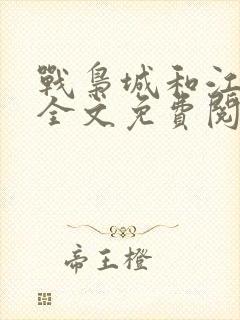 戰梟城和江
全文免費閱
帝王橙